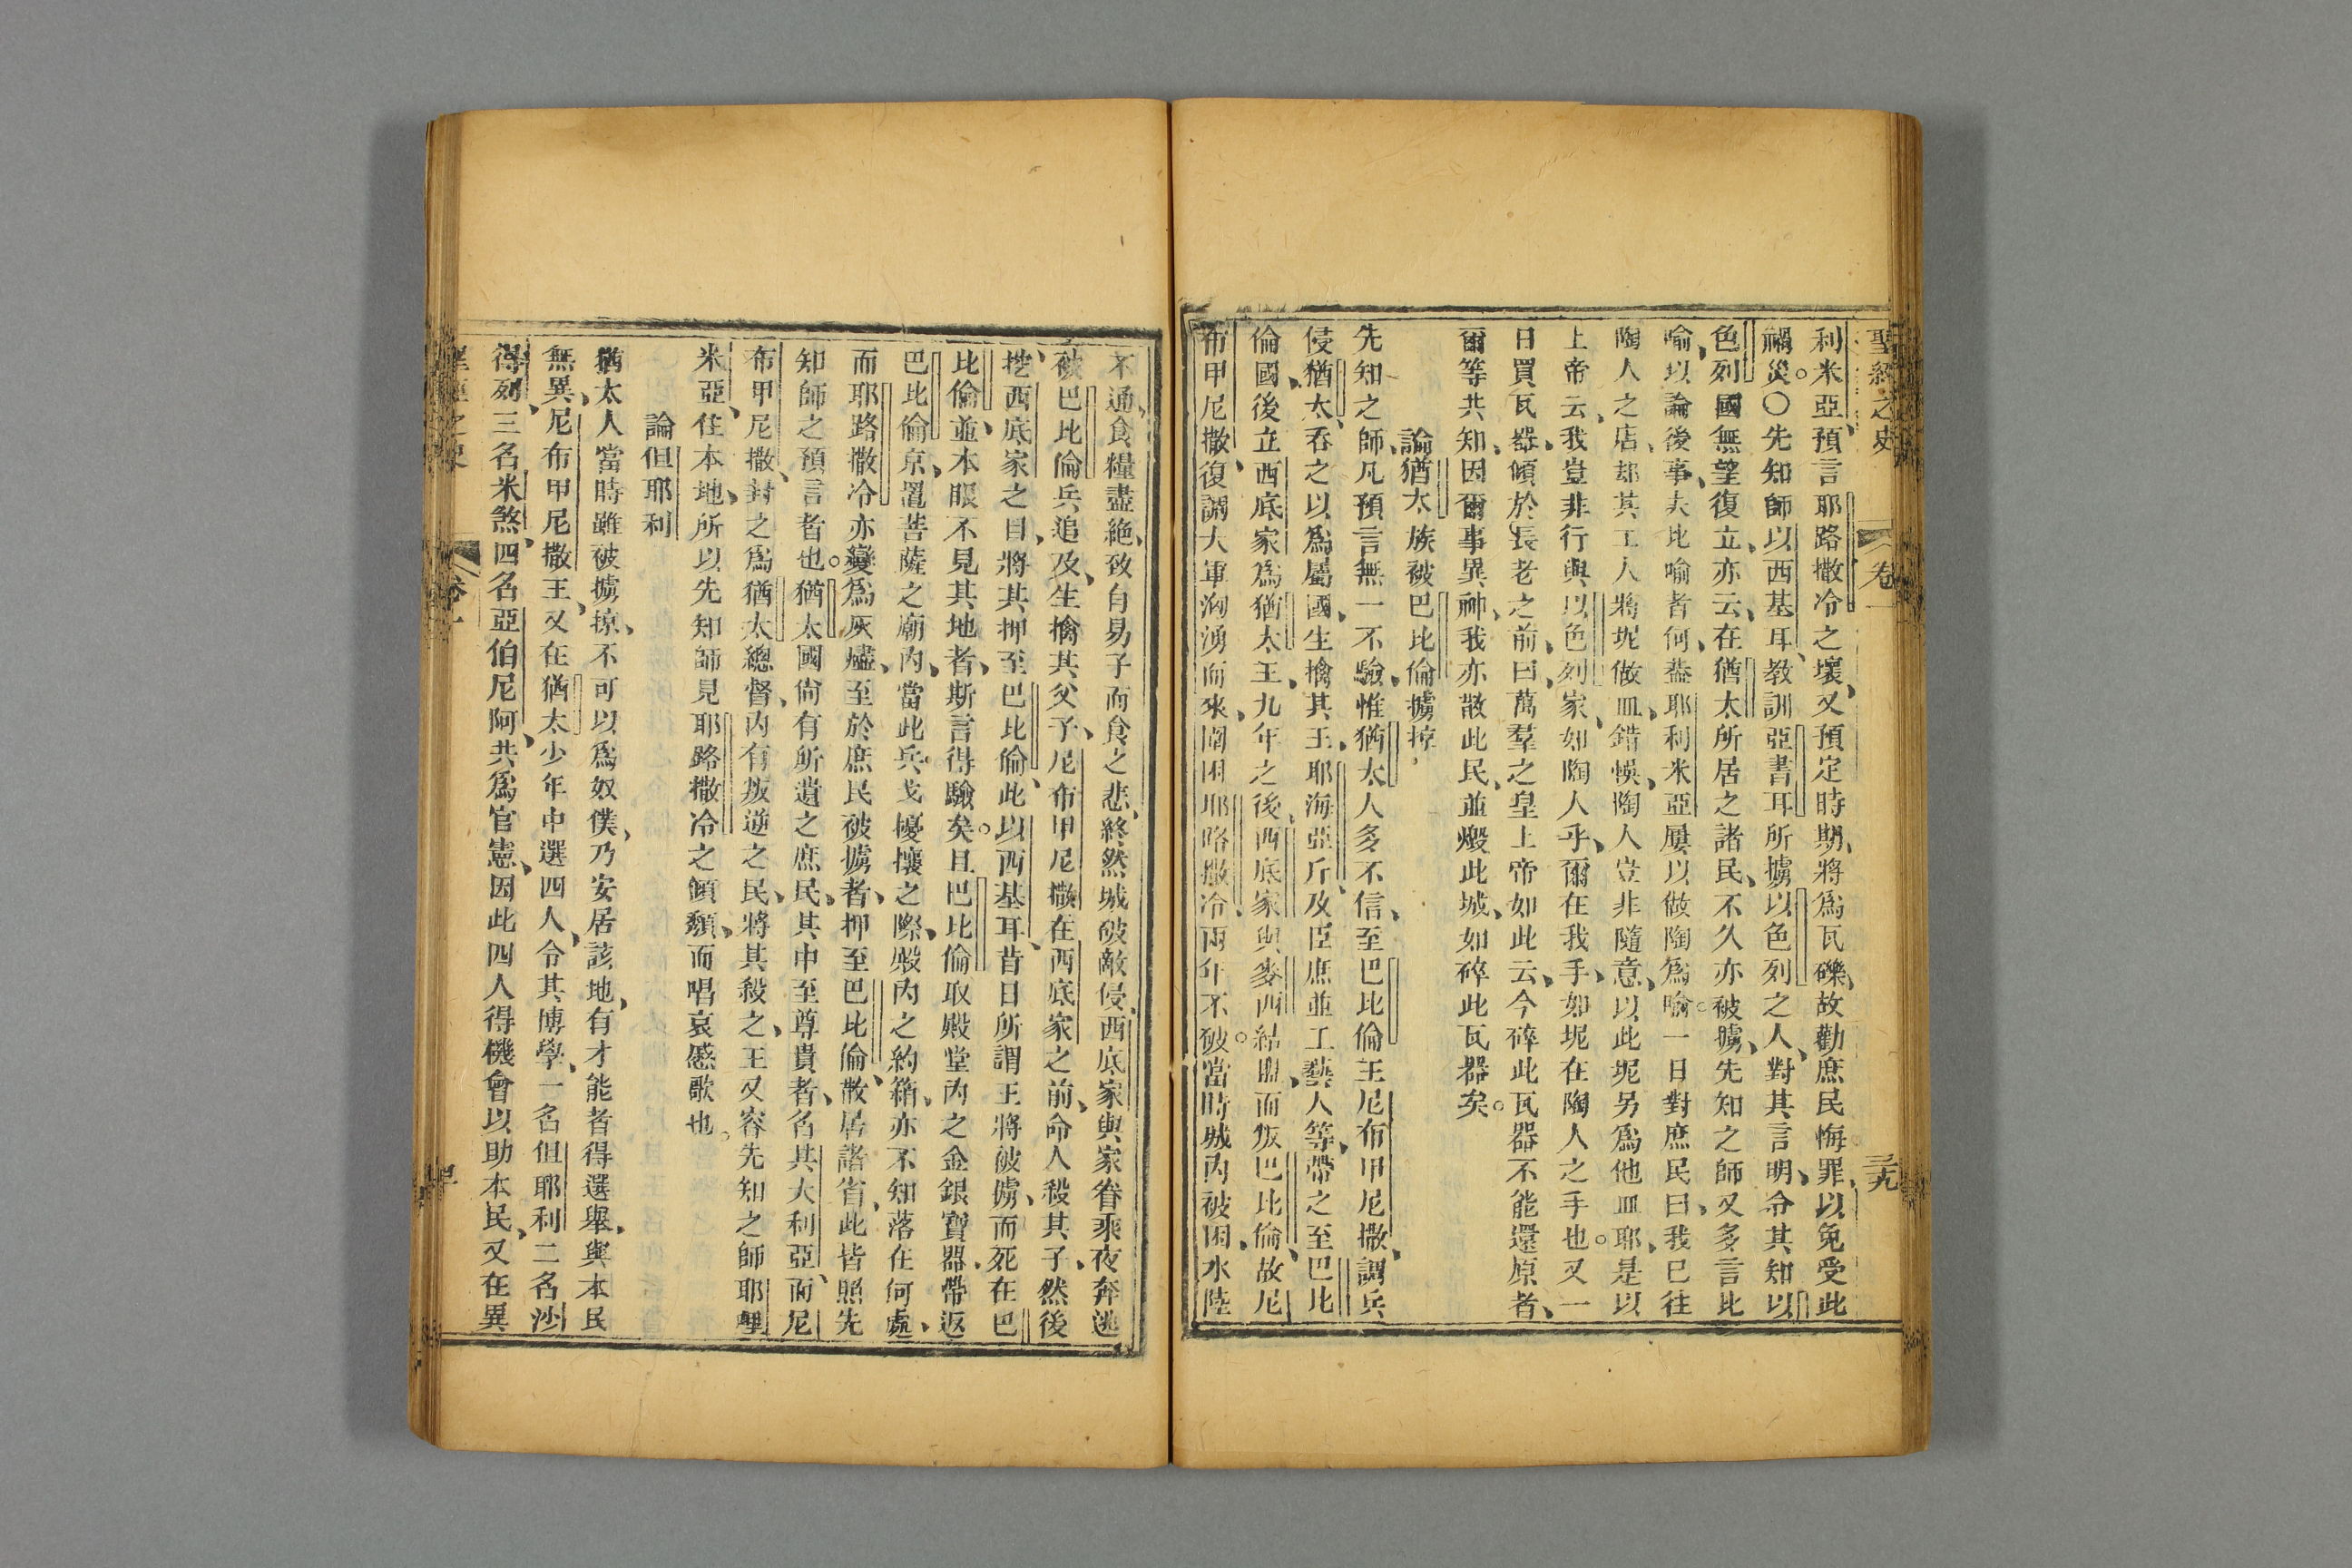 聖經之史 卷一 三十九
利米亞預言耶路撒冷之壞、又預定時期、將爲瓦礫、故勸庶民悔罪、以免受此
禍災。〇先知師以西基耳、教訓亞書耳所擄以色列之人、對其言明、令其知以
色列國無望復立、亦云、在猶太所居之諸民、不久亦被擄、先知之師又多言比
喻、以論後事、夫比喻者何、蓋耶利米亞屢以做陶爲喻。一日對庶民曰、我已往
陶人之店、却其工人將坭做皿、錯悞、陶人豈非隨意、以此坭另爲他皿耶、是以
上帝云、我豈非行與以色列家、如陶人乎、爾在我手、如坭在陶人之手也。又一
日買瓦器、傾於長老之前、曰、萬羣之皇上帝如此云、今碎此瓦器不能還原者、
爾等共知、因爾事異神、我亦散此民、並燬此城、如碎此瓦器矣。
論猶太族被巴比倫擄掠、
先知之師、凡預言無一不驗、惟猶太人多不信、至巴比倫王尼布甲尼撒、調兵
侵猶太、吞之以爲屬國、生擒其王、耶海亞斤、及臣庶並工藝人等、帶之至巴比
倫國、後立西底家爲猶太王、九年之後、西底家與麥西結盟、而叛巴比倫、故尼
布甲尼撒、復調大軍洶湧而來、圍困耶路撒冷、兩年不破。當時城內被困、水陸
不通、食糧盡絶、致自易子而食之悲、終然城破敵侵、西底家與家眷乘夜奔逃
被巴比倫兵追及、生擒其父子、尼布甲尼撒在西底家之前、命人殺其子、然後
挖西底家之目、將其押至巴比倫、此以西基耳、昔日所謂王將被擄、而死在巴
比倫、並本眼不見其地者、斯言得驗矣。且巴比倫取殿堂內之金銀寶器、帶返
巴比倫京、置菩薩之廟內、當此兵戈擾壤之際、殿內之約箱、亦不知落在何處、
而耶路撒冷亦變爲灰燼、至於庶民被擄者、押至巴比倫、散居諸省、此皆照先
知師之預言者也。猶太國尙有所遺之庶民、其中至尊貴者、名其大利亞、而尼
布甲尼撒、封之爲猶太總督、內有叛逆之民、將其殺之、王又容先知之師耶哩
米亞、住本地、所以先知師見耶路撒冷之傾頽、而唱哀慼歌也。
論但耶利
猶太人當時雖被擄掠、不可以爲奴僕、乃安居該地、有才能者得選舉、與本民
無異、尼布甲尼撒王、又在猶太少年中選四人、令其博學、一名但耶利二名沙
得列、三名米煞、四名亞伯尼阿、共爲官憲、因此四人得機會以助本民、又在異
聖經之史 卷一